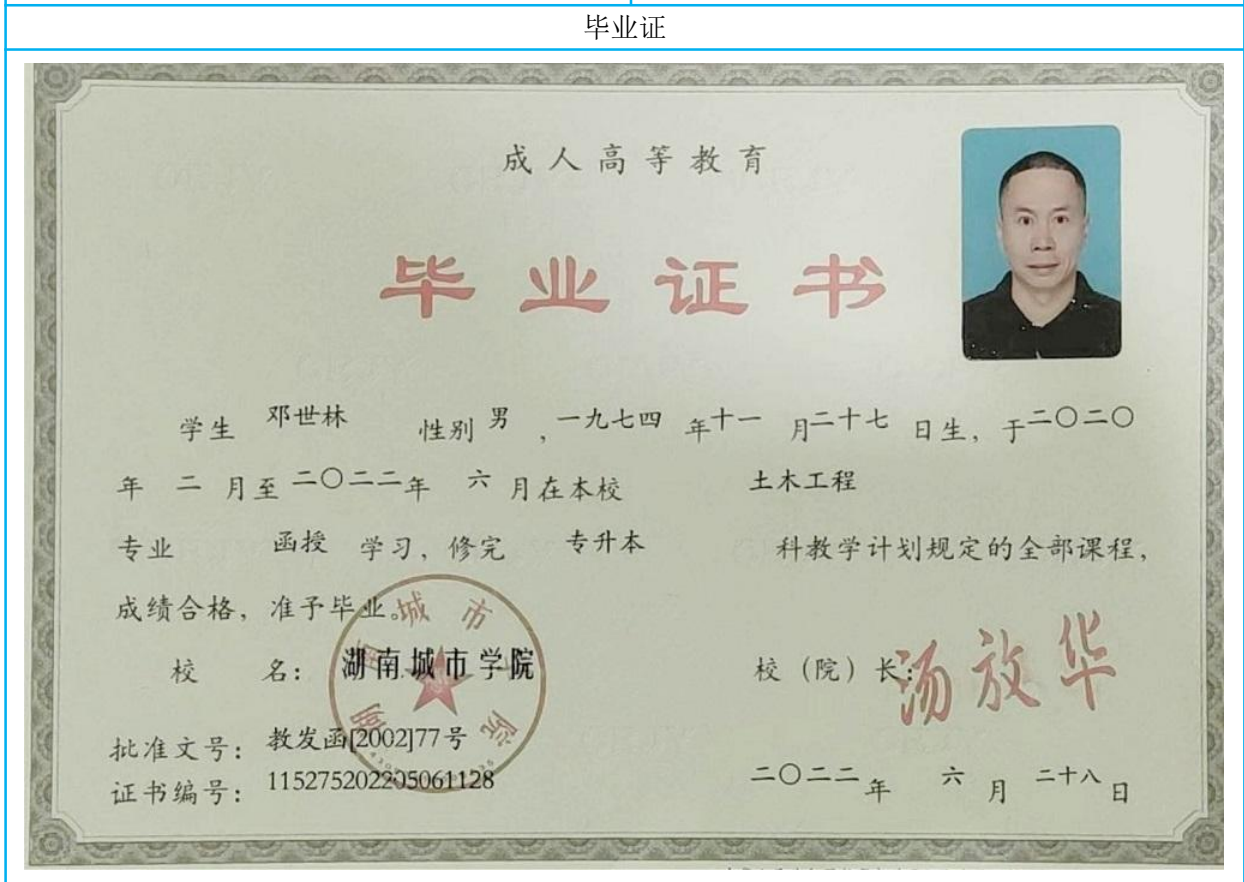 毕业证
成人高等教育
毕业证书
学生 邓世林 性别 男 ,一九七四 年十一 月二十七 日生, 于二〇二〇
年 二 月至 二〇二二年 六 月在本校 土木工程
专业 函授 学习, 修完 专升本 科教学计划规定的全部课程,
成绩合格, 准予毕业。
校 名: 湖南城市学院 校 (院) 长: 汤放华
湖南城市学院
批准文号: 教发函[2002]77号
证书编号: 115275202205061128 二〇二二年 六 月 二十八 日